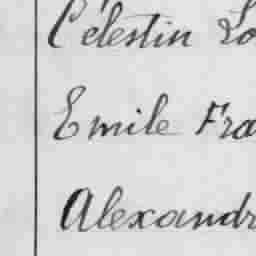 Célestin Lo
Emile Fra
Alexandr